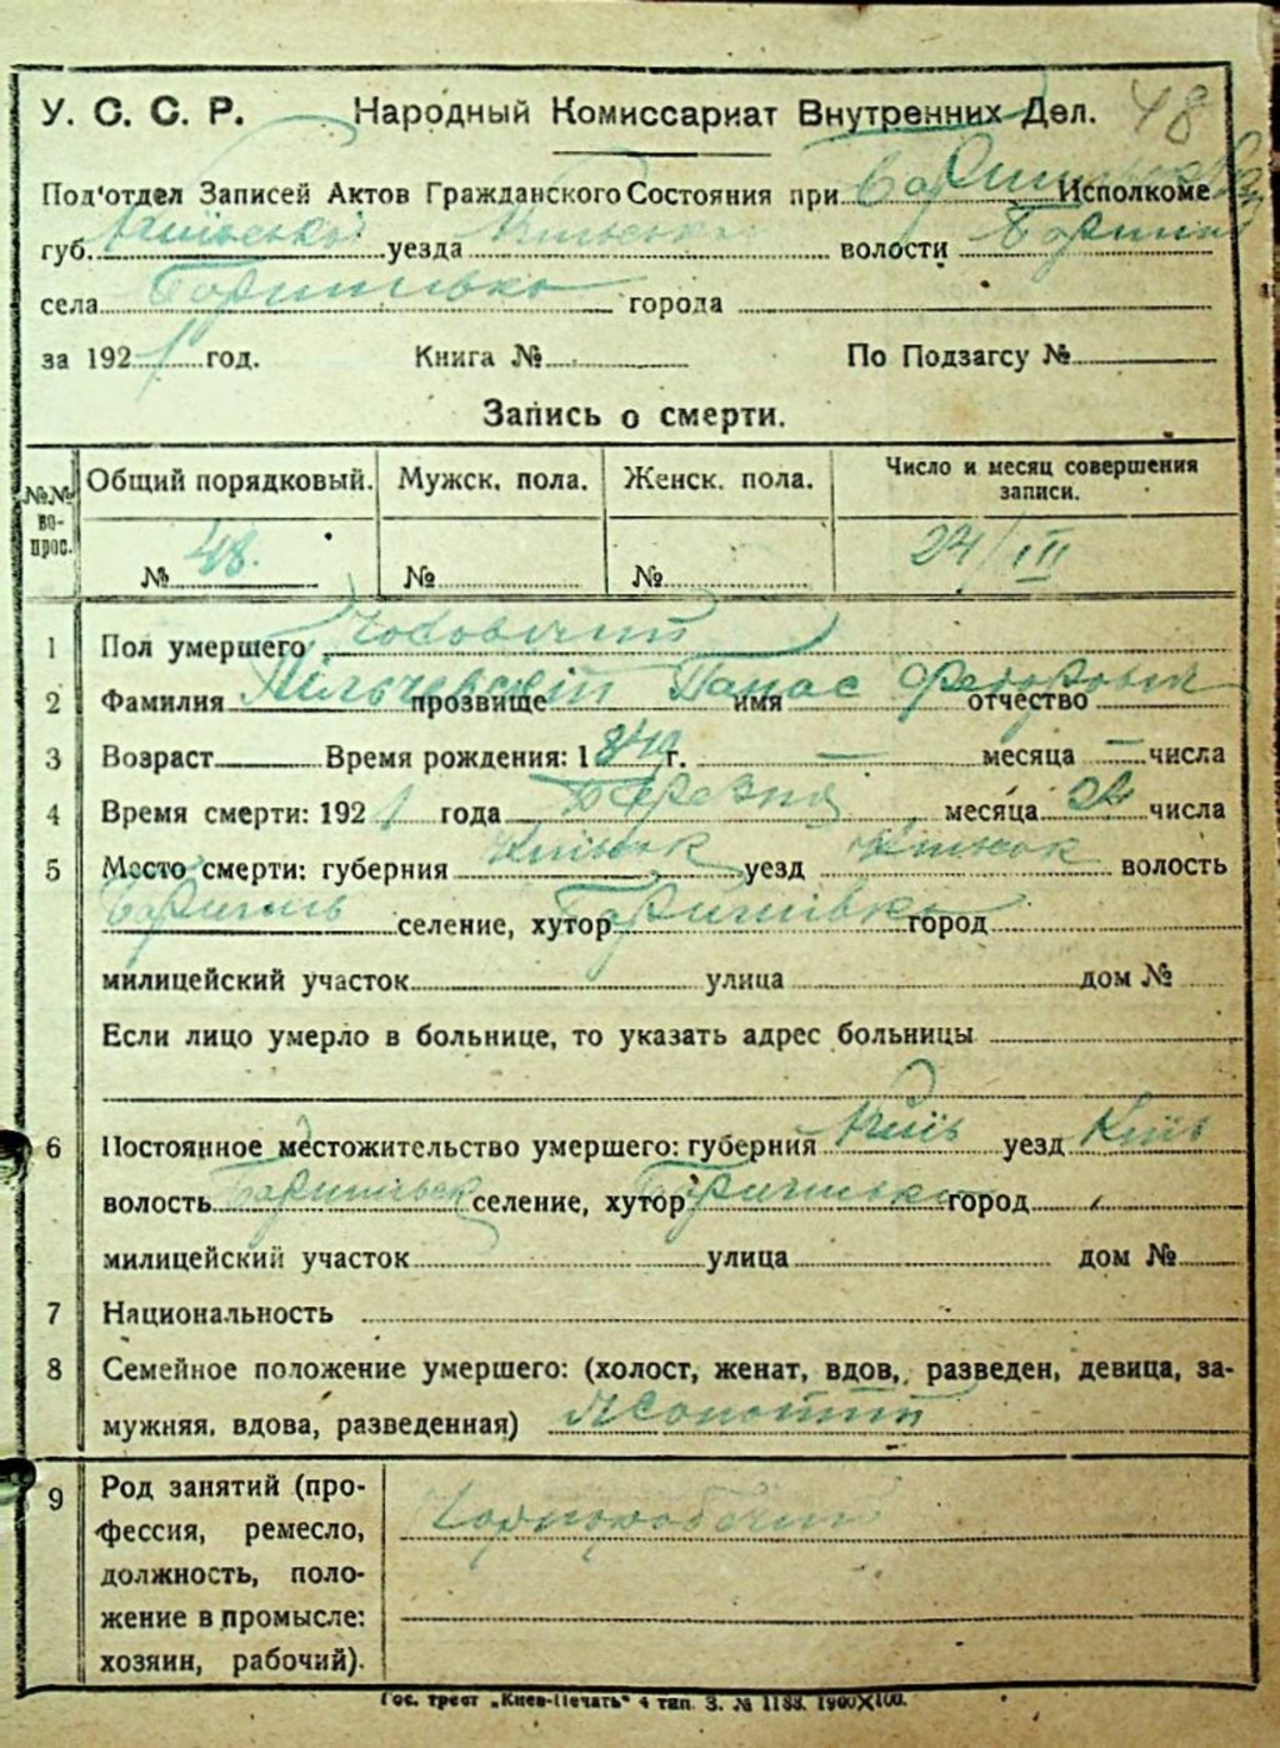 У. С. С. Р. Народный Комиссариат Внутренних Дел. 48
Под'отдел Записей Актов Гражданского Состояния при Исполкоме
губ. уезда волости
села Баришівка города
за 1921 год. Книга № По Подзагсу №
Запись о смерти.
№№ вопрос. Общий порядковый. Мужск. пола. Женск. пола. Число и месяц совершения записи.
№ 48. № № 24/III
1 Пол умершего Чоловічий
2 Фамилия прозвище Панас имя Федорович отчество
3 Возраст Время рождения: 1 г. — месяца — числа
4 Время смерти: 1921 года Березня месяца числа
5 Место смерти: губерния уезд волость
селение, хутор Баришівка город
милицейский участок улица дом №
Если лицо умерло в больнице, то указать адрес больницы
6 Постоянное местожительство умершего: губерния Київ уезд Київ
волость селение, хутор Баришівка город
милицейский участок улица дом №
7 Национальность
8 Семейное положение умершего: (холост, женат, вдов, разведен, девица, за-
мужняя, вдова, разведенная) Жонатий
9 Род занятий (про-
фессия, ремесло, Чорноробочий
должность, поло-
жение в промысле:
хозяин, рабочий).
Гос. трест „Киев-Печать" 4 тип. З. № 1183. 1900×100.